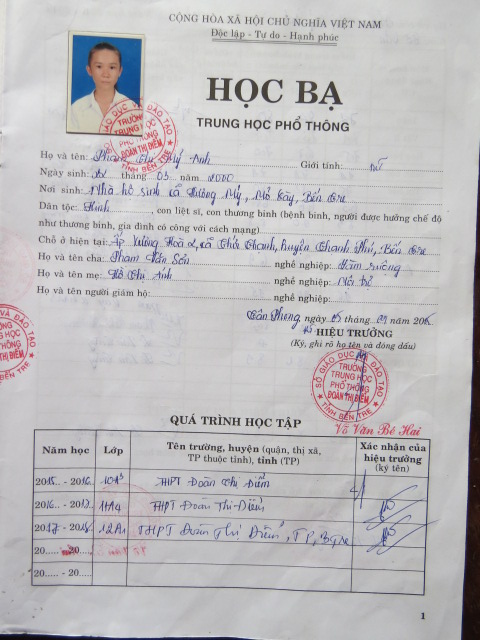 CỘNG HÒA XÃ HỘI CHỦ NGHĨA VIỆT NAM
Độc lập - Tự do - Hạnh phúc
HỌC BẠ
TRUNG HỌC PHỔ THÔNG
SỞ GIÁO DỤC VÀ ĐÀO TẠO
TRƯỜNG
TRUNG HỌC
PHỔ THÔNG
ĐOÀN THỊ ĐIỂM
TỈNH BẾN TRE
Họ và tên: Phạm Thị Mỹ Anh Giới tính: nữ
Ngày sinh: tháng 03 năm 2000
Nơi sinh: Nhà hộ sinh xã Hương Mỹ, Mỏ Cày, Bến Tre
Dân tộc: Kinh, con liệt sĩ, con thương binh (bệnh binh, người được hưởng chế độ
như thương binh, gia đình có công với cách mạng)
Chỗ ở hiện tại: Ấp Hoà 2, xã Thới Thạnh, huyện Thạnh Phú, Bến Tre
Họ và tên cha: Phạm Văn Sơn nghề nghiệp: Làm ruộng
Họ và tên mẹ: Hồ Thị Ánh nghề nghiệp: Nội trợ
Họ và tên người giám hộ: nghề nghiệp:
Tân Phong, ngày 05 tháng 09 năm
HIỆU TRƯỞNG
(Ký, ghi rõ họ tên và đóng dấu)
SỞ GIÁO DỤC VÀ ĐÀO TẠO
TRƯỜNG
TRUNG HỌC
PHỔ THÔNG
ĐOÀN THỊ ĐIỂM
TỈNH BẾN TRE
Võ Văn Bé Hai
QUÁ TRÌNH HỌC TẬP
Năm học Lớp Tên trường, huyện (quận, thị xã, TP thuộc tỉnh), tỉnh (TP) Xác nhận của hiệu trưởng (ký tên)
2015 - 2016 10A3 THPT Đoàn Thị Điểm
2016 - 2017 11A4 THPT Đoàn Thị Điểm
2017 - 2018 12A1 THPT Đoàn Thị Điểm, TP,
20..... - 20.....
20..... - 20.....
1